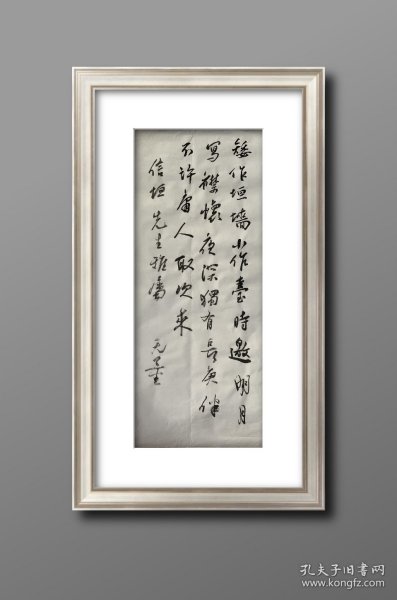 矮作垣墙小作臺時邀明月
寫襟懷夜深獨有長庚伴
不許庸人取次來
信垣先生雅屬
孔夫子旧书网
www.kongfz.com